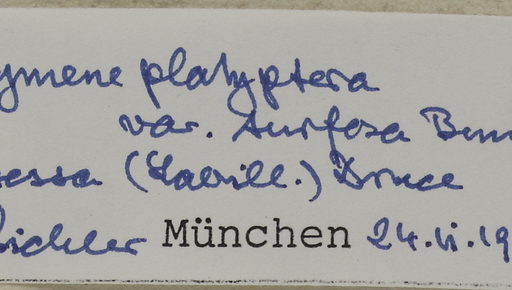 ymene platyptera
var. surfosa Bun
essa (Labill.) Druce
ichler München 24.vi.19